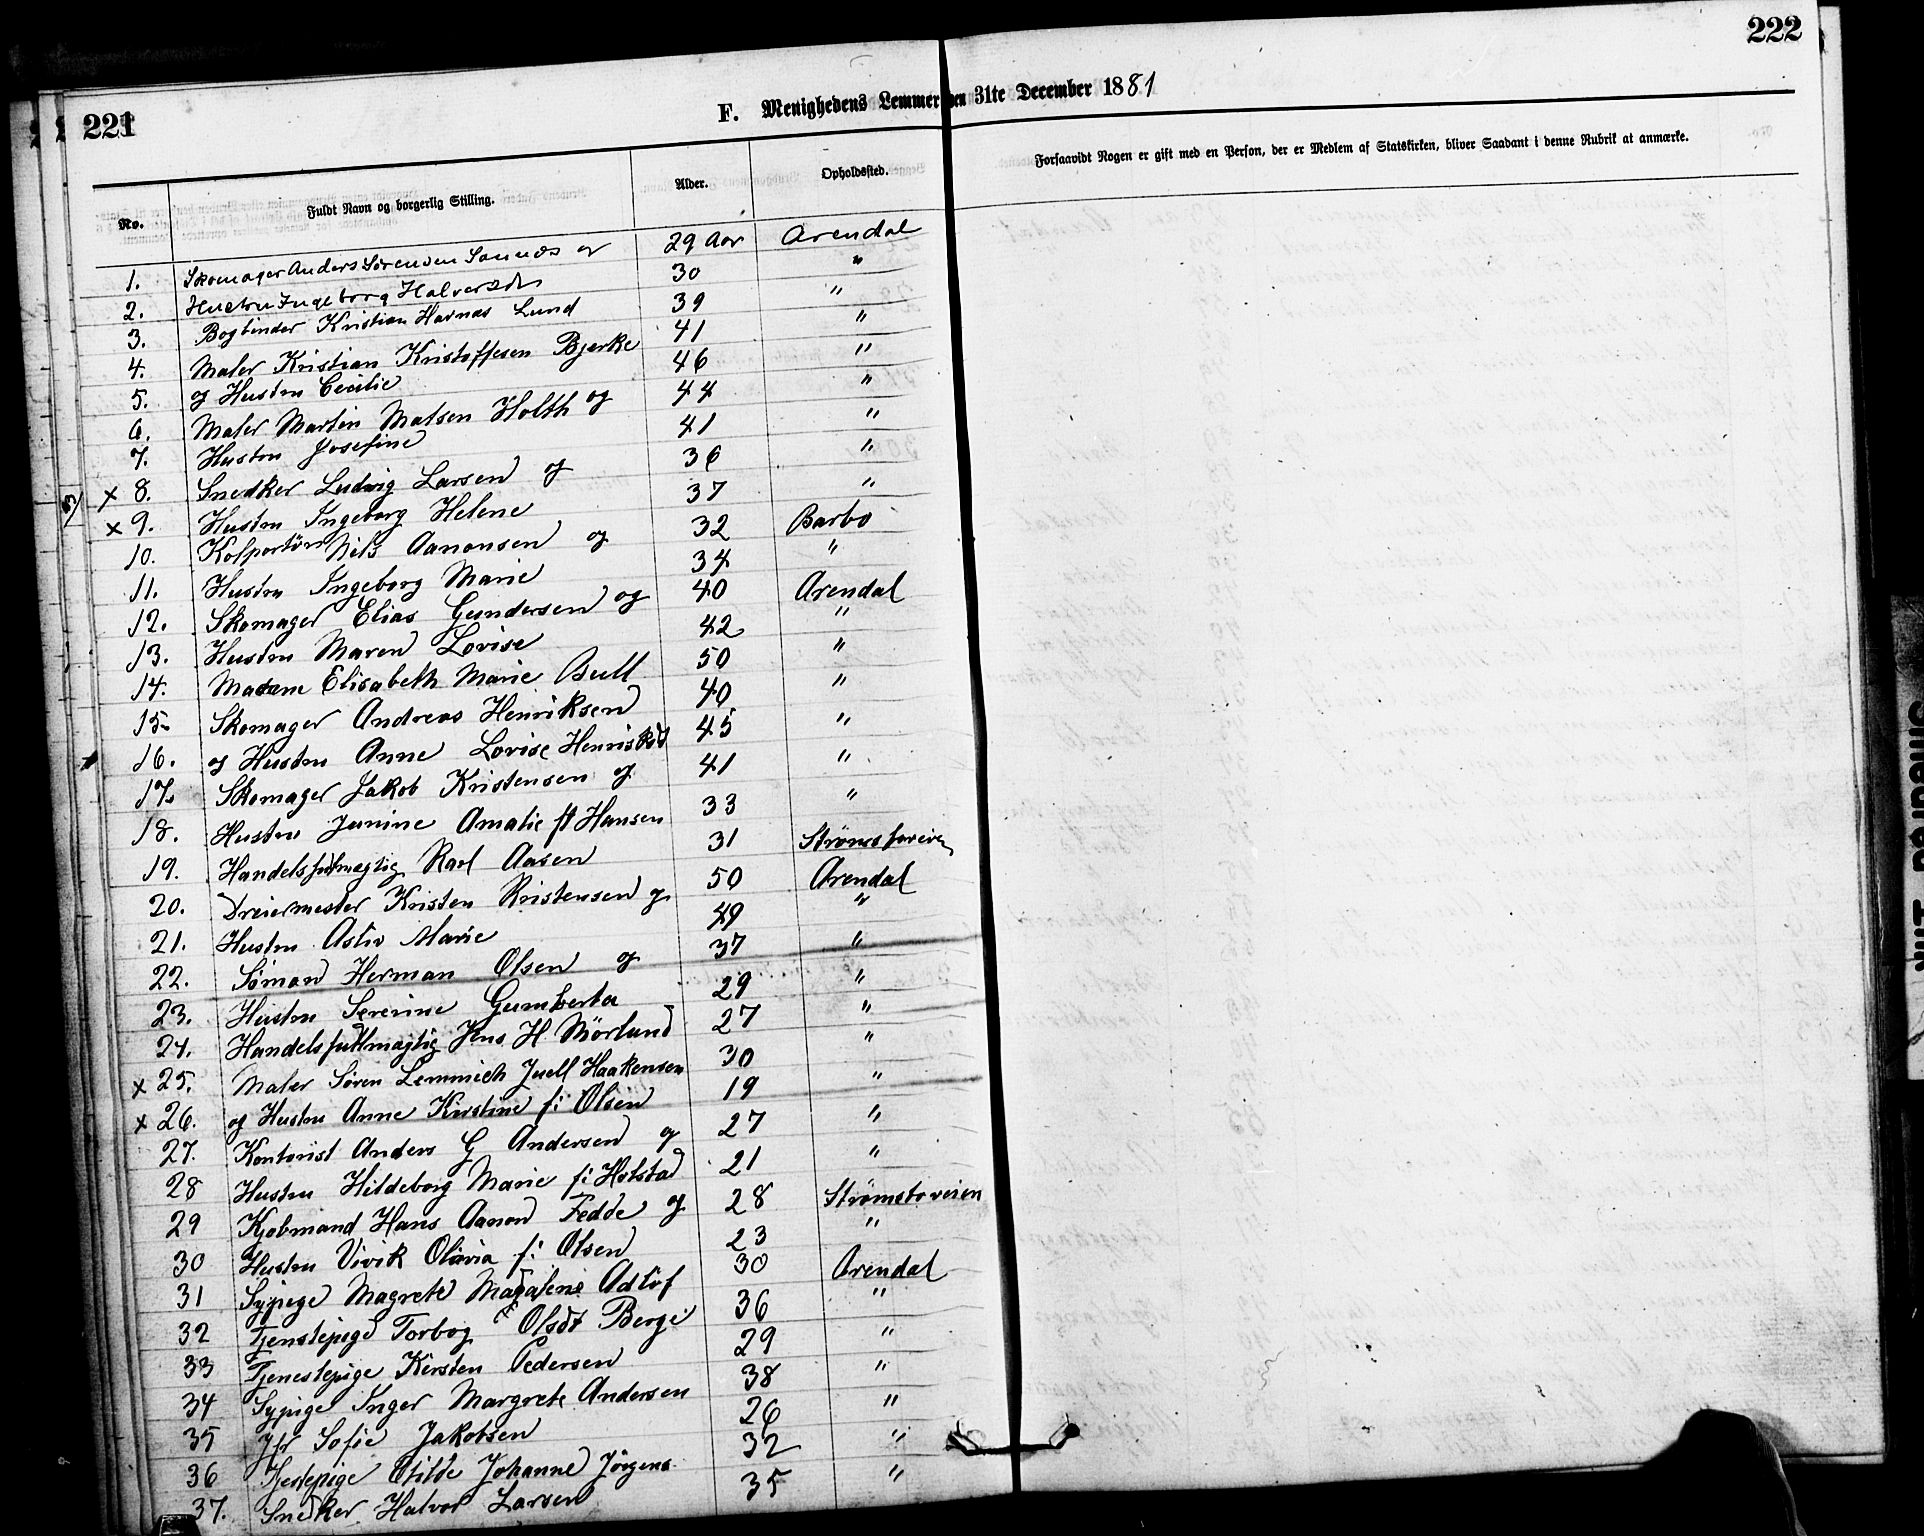 222
221
F. Menighedens Lemmer den 31te December 1881
No.
Fuldt Navn og borgerlig Stilling.
Alder.
Opholdssted.
Forsaavidt Nogen er gift med en Person, der er Medlem af Statskirken, bliver Saadant i denne Rubrik at anmærke.
1. Skomager Anders Sørensen og 29 Aar Arendal
2. Hustru Ingeborg Halversdtr 30 "
3. Bogbinder Kristian Havnas Lund 39 "
4. Maler Kristian Kristoffesen Bjerke 41 "
5. og Hustru Cecilie 46 "
6. Maler Martin Matsen Holth og 44 "
7. Hustru Josefine 41 "
x 8. Snedker Ludvig Larsen og 36 "
x 9. Hustru Ingeborg Helene 37 "
10. Kolportør Nils Aanonsen og 32 Barbo
11. Hustru Ingeborg Marie 34 "
12. Skomager Elias Gundersen og 40 Arendal
13. Hustru Maren Lovise 42 "
14. Madame Elisabeth Marie Bull 50 "
15. Skomager Andreas Henriksen 40 "
16. og Hustru Anne Lovise 45 "
17. Skomager Jakob Kristensen og 41 "
18. Hustru Junine Amalie ft Hansen 33 "
19. Handelsfuldmægtig Karl Aasen 31 Strømsboveien
20. Dreiermester Kristen Kristensen og 50 Arendal
21. Hustru Marie 49 "
22. Sømand Herman Olsen og 37 "
23. Hustru Serenine 29 "
24. Handelsfuldmægtig Jens H. Mörlund 27 "
x 25. Maler Søren Lemmich Juell Haakensen 30 "
x 26. og Hustru Anne Kirstine f: Olsen 19 "
27. Kontorist Anders G Andersen og 27 "
28 Hustru Hildeborg Marie f: Holstad 21 "
29 Kjøbmand Hans Aanon Fedde og 28 Strømsboveien
30 Hustru Vivik Olavia f: Olsen 23 "
31 Sypige Magrete Madalene Adlöf 30 Arendal
32 Tjenstepige Torbog Olsdt Berge 36 "
33 Tjenestepige Kirsten Pedersen 29 "
34 Sypige Inger Margrete Andersen 38 "
35 Jfr Sofie Jakobsen 26 "
36 Tjestepige Otilde Johanne Jörgens. 32 "
37. Snedker Halvor Larsen 35 "